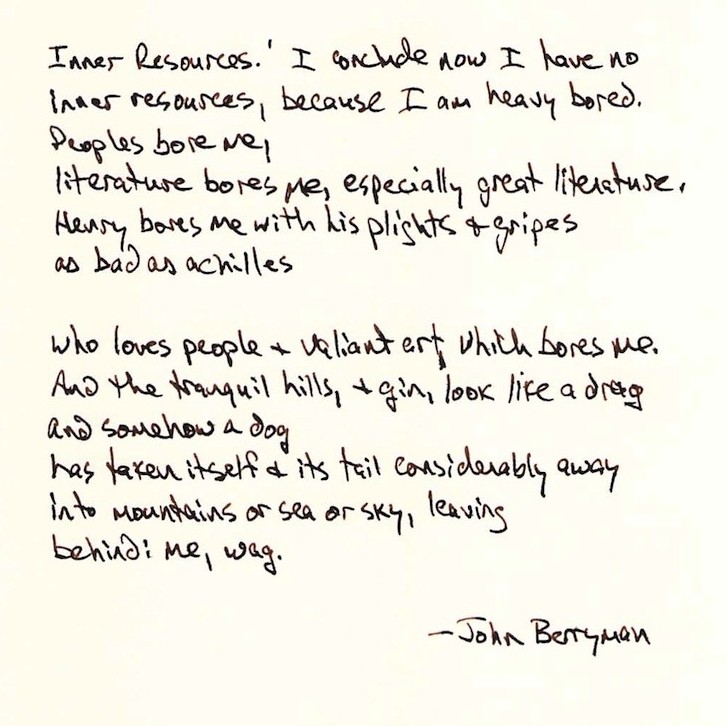 Inner Resources.' I conclude now I have no
inner resources, because I am heavy bored.
Peoples bore me,
literature bores me, especially great literature,
Henry bores me with his plights & gripes
as bad as achilles
who loves people & valiant art, which bores me.
And the tranquil hills, & gin, look like a drag
and somehow a dog
has taken itself & its tail considerably away
into mountains or sea or sky, leaving
behind: me, wag.
—John Berryman